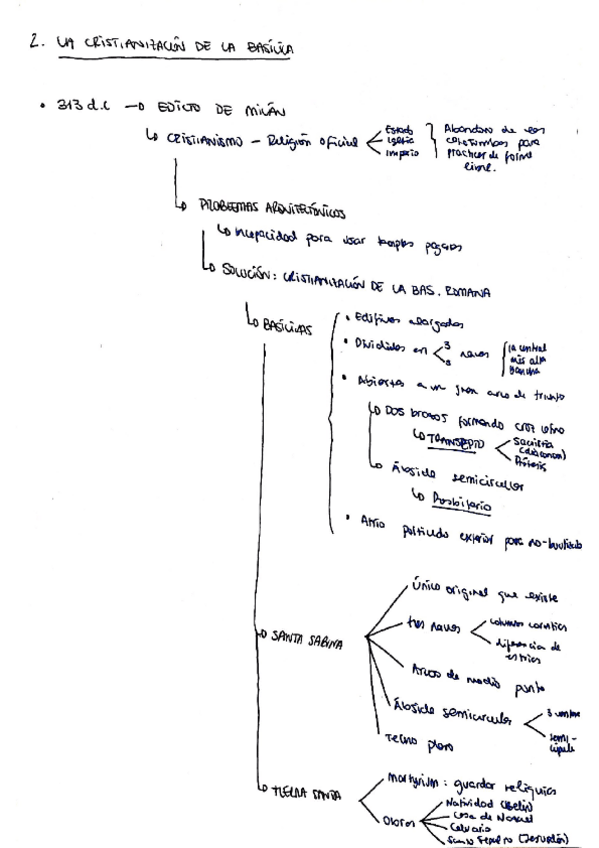 2. LA CRISTIANIZACIÓN DE LA BASÍLICA
• 313 d.C → EDICTO DE MILÁN
↳ CRISTIANISMO – Religión oficial
Estado
Iglesia
Imperio
Abandono de
catacumbas para
practicar de forma
libre.
↳ PROBLEMAS ARQUITECTÓNICOS
↳ Incapacidad para usar templos paganos
↳ SOLUCIÓN: CRISTIANIZACIÓN DE LA BAS. ROMANA
↳ BASÍLICAS
• Edificios alargados
• Divididos en 3 naves
la central
más alta
• Abiertas a un gran arco de triunfo
↳ DOS brazos formando cruz latina
↳ TRANSEPTO
Sacristía
(diaconicon)
Prótesis
↳ Ábside semicircular
↳ Presbiterio
• Atrio porticado exterior para no-bautizados
↳ SANTA SABINA
Único original que existe
tres naves
columnas corintias
diferencia de
Arcos de medio punto
Ábside semicircular
3
semi-
cúpula
Techo plano
↳ TIERRA SANTA
Martyrium: guardar reliquias
Obras
Natividad (Belén)
Casa de Nazaret
Calvario
Santo Sepulcro (Jerusalén)